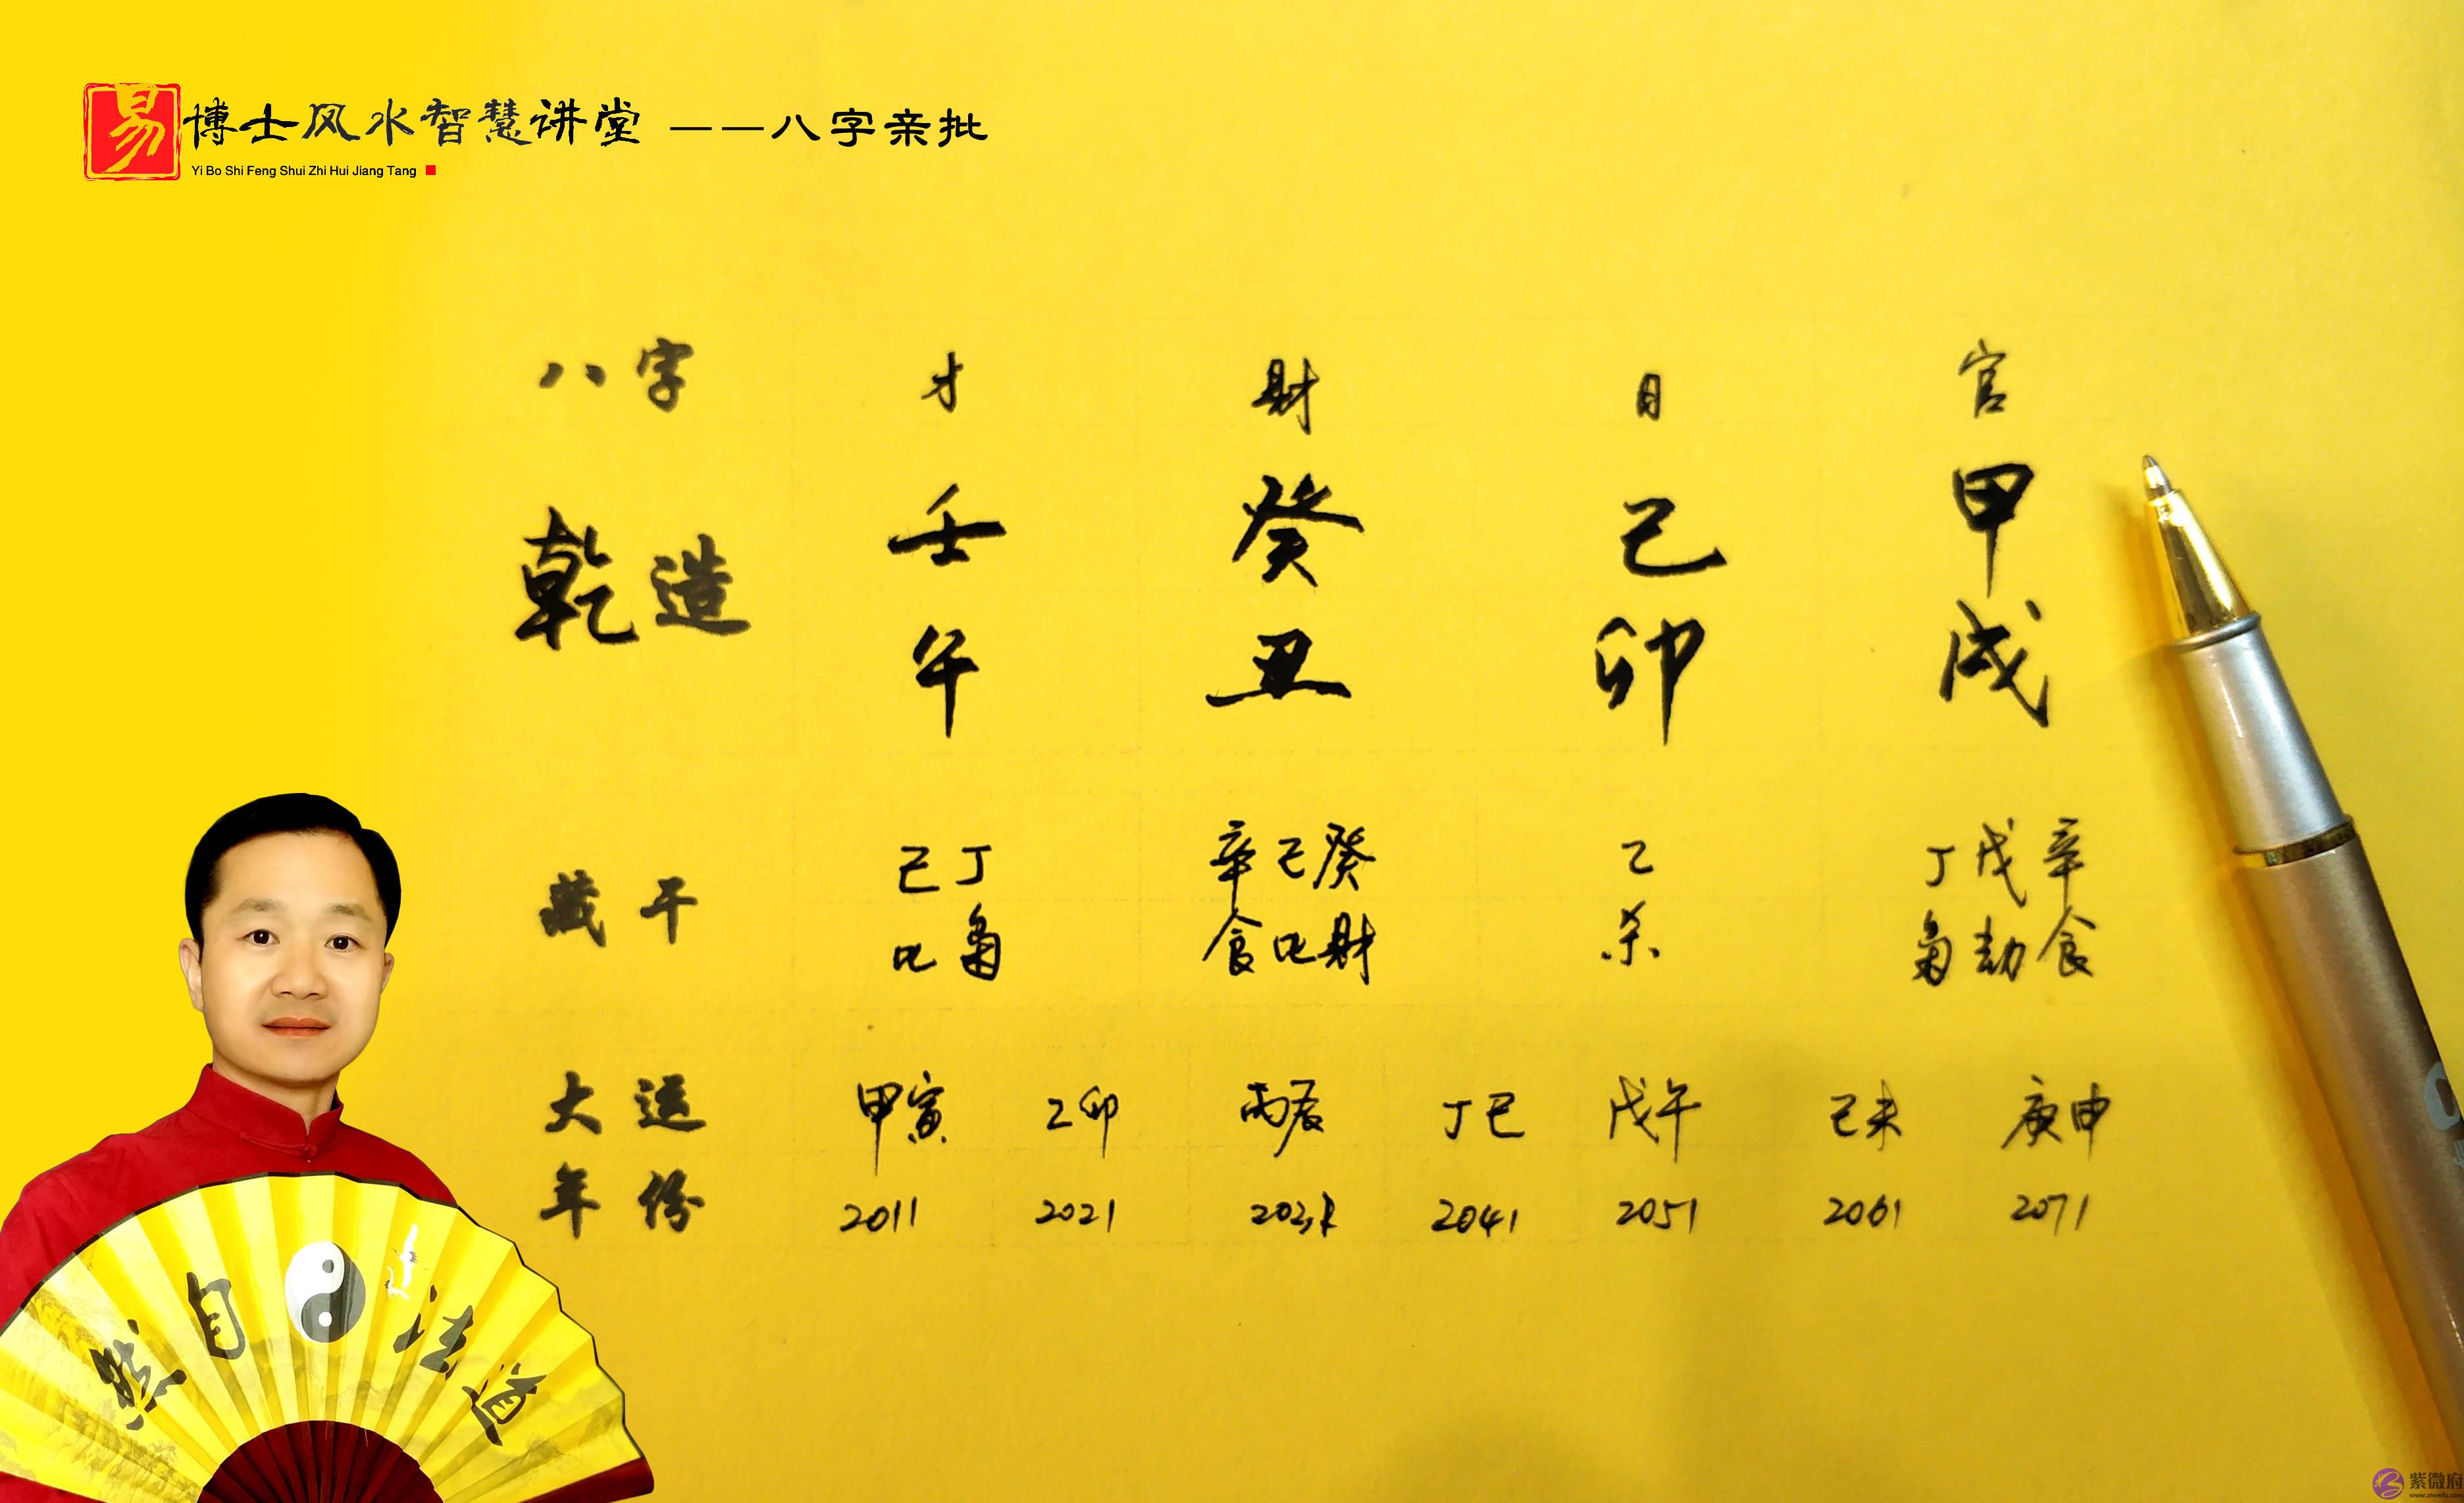 易博士风水智慧讲堂 ——八字亲批
Yi Bo Shi Feng Shui Zhi Hui Jiang Tang
八字 才 财 日 官
乾造 壬 癸 己 甲
午 丑 卯 戌
藏干 己丁 辛己癸 乙 丁戊辛
比枭 食比财 杀 枭劫食
大运 甲寅 乙卯 丙辰 丁巳 戊午 己未 庚申
年份 2011 2021 2031 2041 2051 2061 2071
然自法道
紫微府